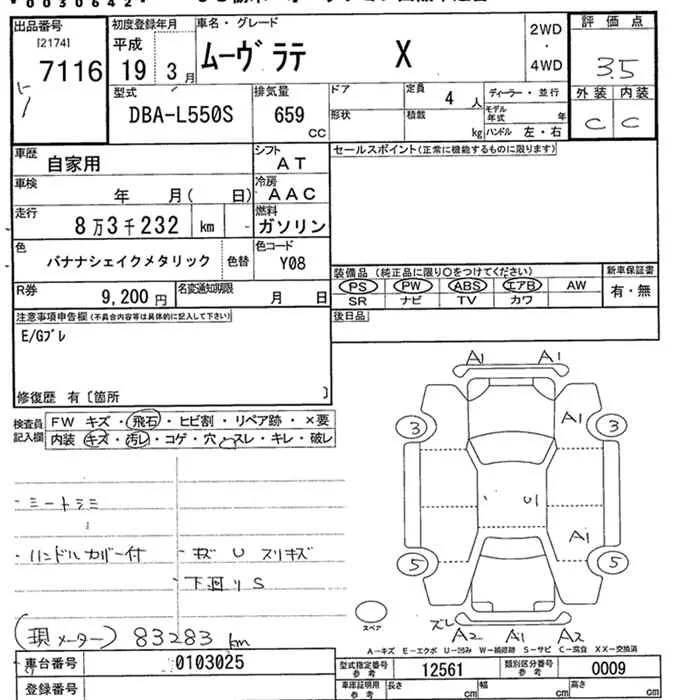 *0030642*
出品番号
[2174]
7116
初度登録年月
平成
19 年 3 月
車名・グレード
ムーヴ ラテ X
2WD
・
4WD
評価点
3.5
外装 内装
C C
型式
DBA-L550S
排気量
659
CC
ドア
形状
定員
4 人
積載
kg
ディーラー・並行
モデル年式 年
ハンドル 左・右
車歴
自家用
シフト
AT
セールスポイント(正常に機能するものに限ります)
車検
年 月( 日)
冷房
AAC
走行
8万3千232 km
燃料
ガソリン
色
バナナシェイクメタリック
色替
色コード
Y08
R券
9,200 円
名変通知期限
月 日
装備品 (純正品に限り〇をつけてください)
PS PW ABS エアB AW
SR ナビ TV カワ
新車保証書
有・無
注意事項申告欄(不具合内容等は具体的に記入して下さい)
E/Gブレ
後日品
修復歴 有〔箇所 〕
検査員記入欄
FW キズ・飛石・ヒビ割・リペア跡・×要
内装 キズ・汚レ・コゲ・穴・スレ・キレ・破レ
A1 A1
3 A1 3
U1
A1
5 5
・シートシミ
・ハンドルカバー付
・キズ U スリキズ
・下回りS
(現メーター) 83283 km
スペア
ズレ
A2 A1 A2
A-キズ E-エクボ U-凹み W-補修跡 S-サビ C-腐食 XX-交換済
車台番号
0103025
登録番号
型式指定番号
参考
12561
類別区分番号
参考
0009
車庫証明用
参考
長さ cm 幅 cm 高さ cm